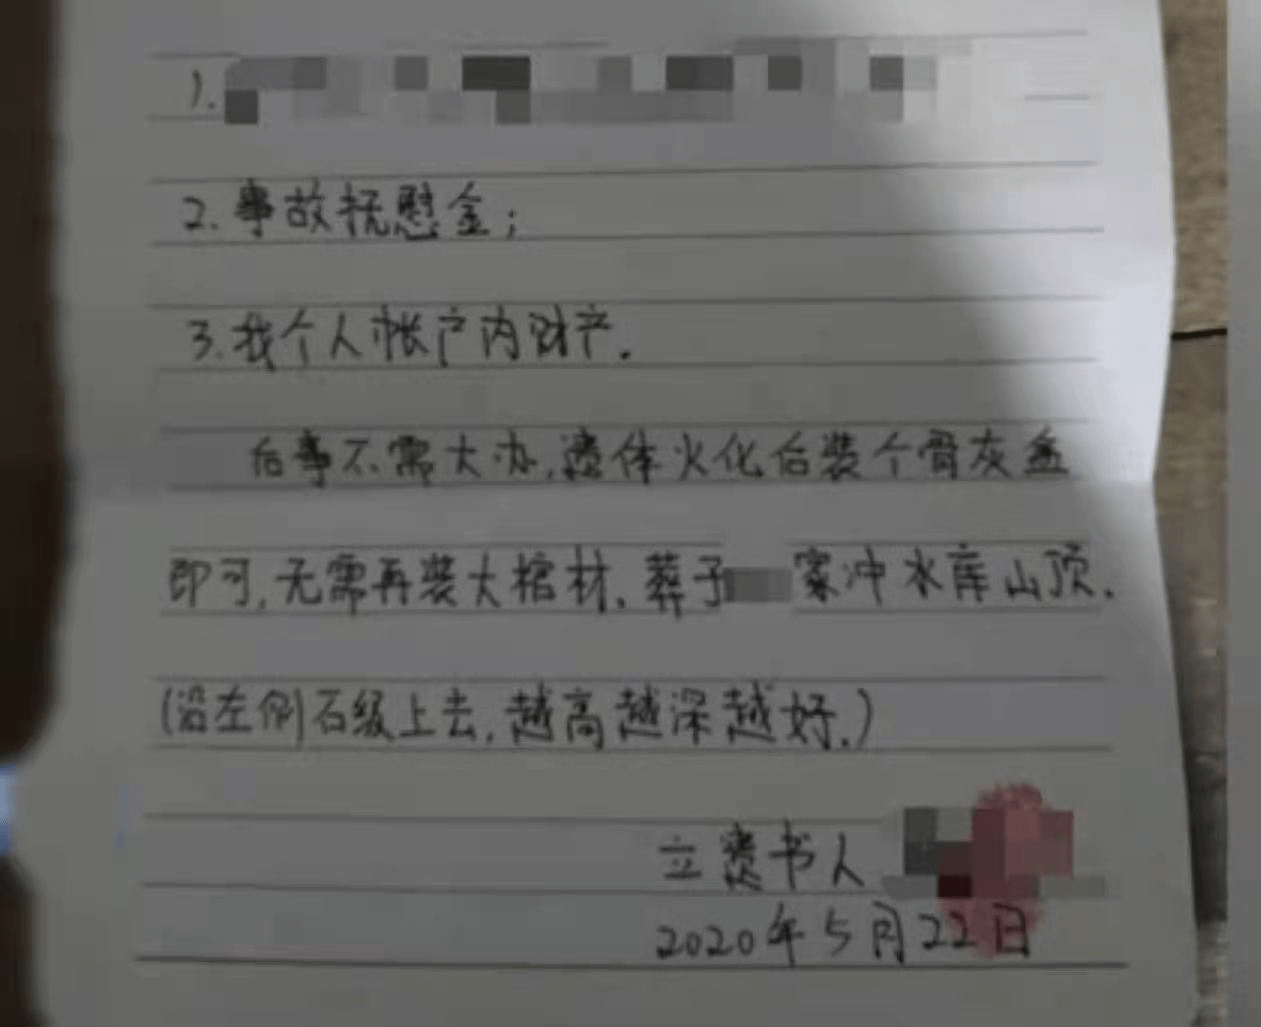 1.
2.事故抚慰金;
3.我个人帐户内财产.
后事不需大办,遗体火化后装个骨灰盒
即可,无需再装大棺材.葬于 家冲水库山顶.
(沿左侧石级上去,越高越深越好.)
立遗书人
2020年5月22日